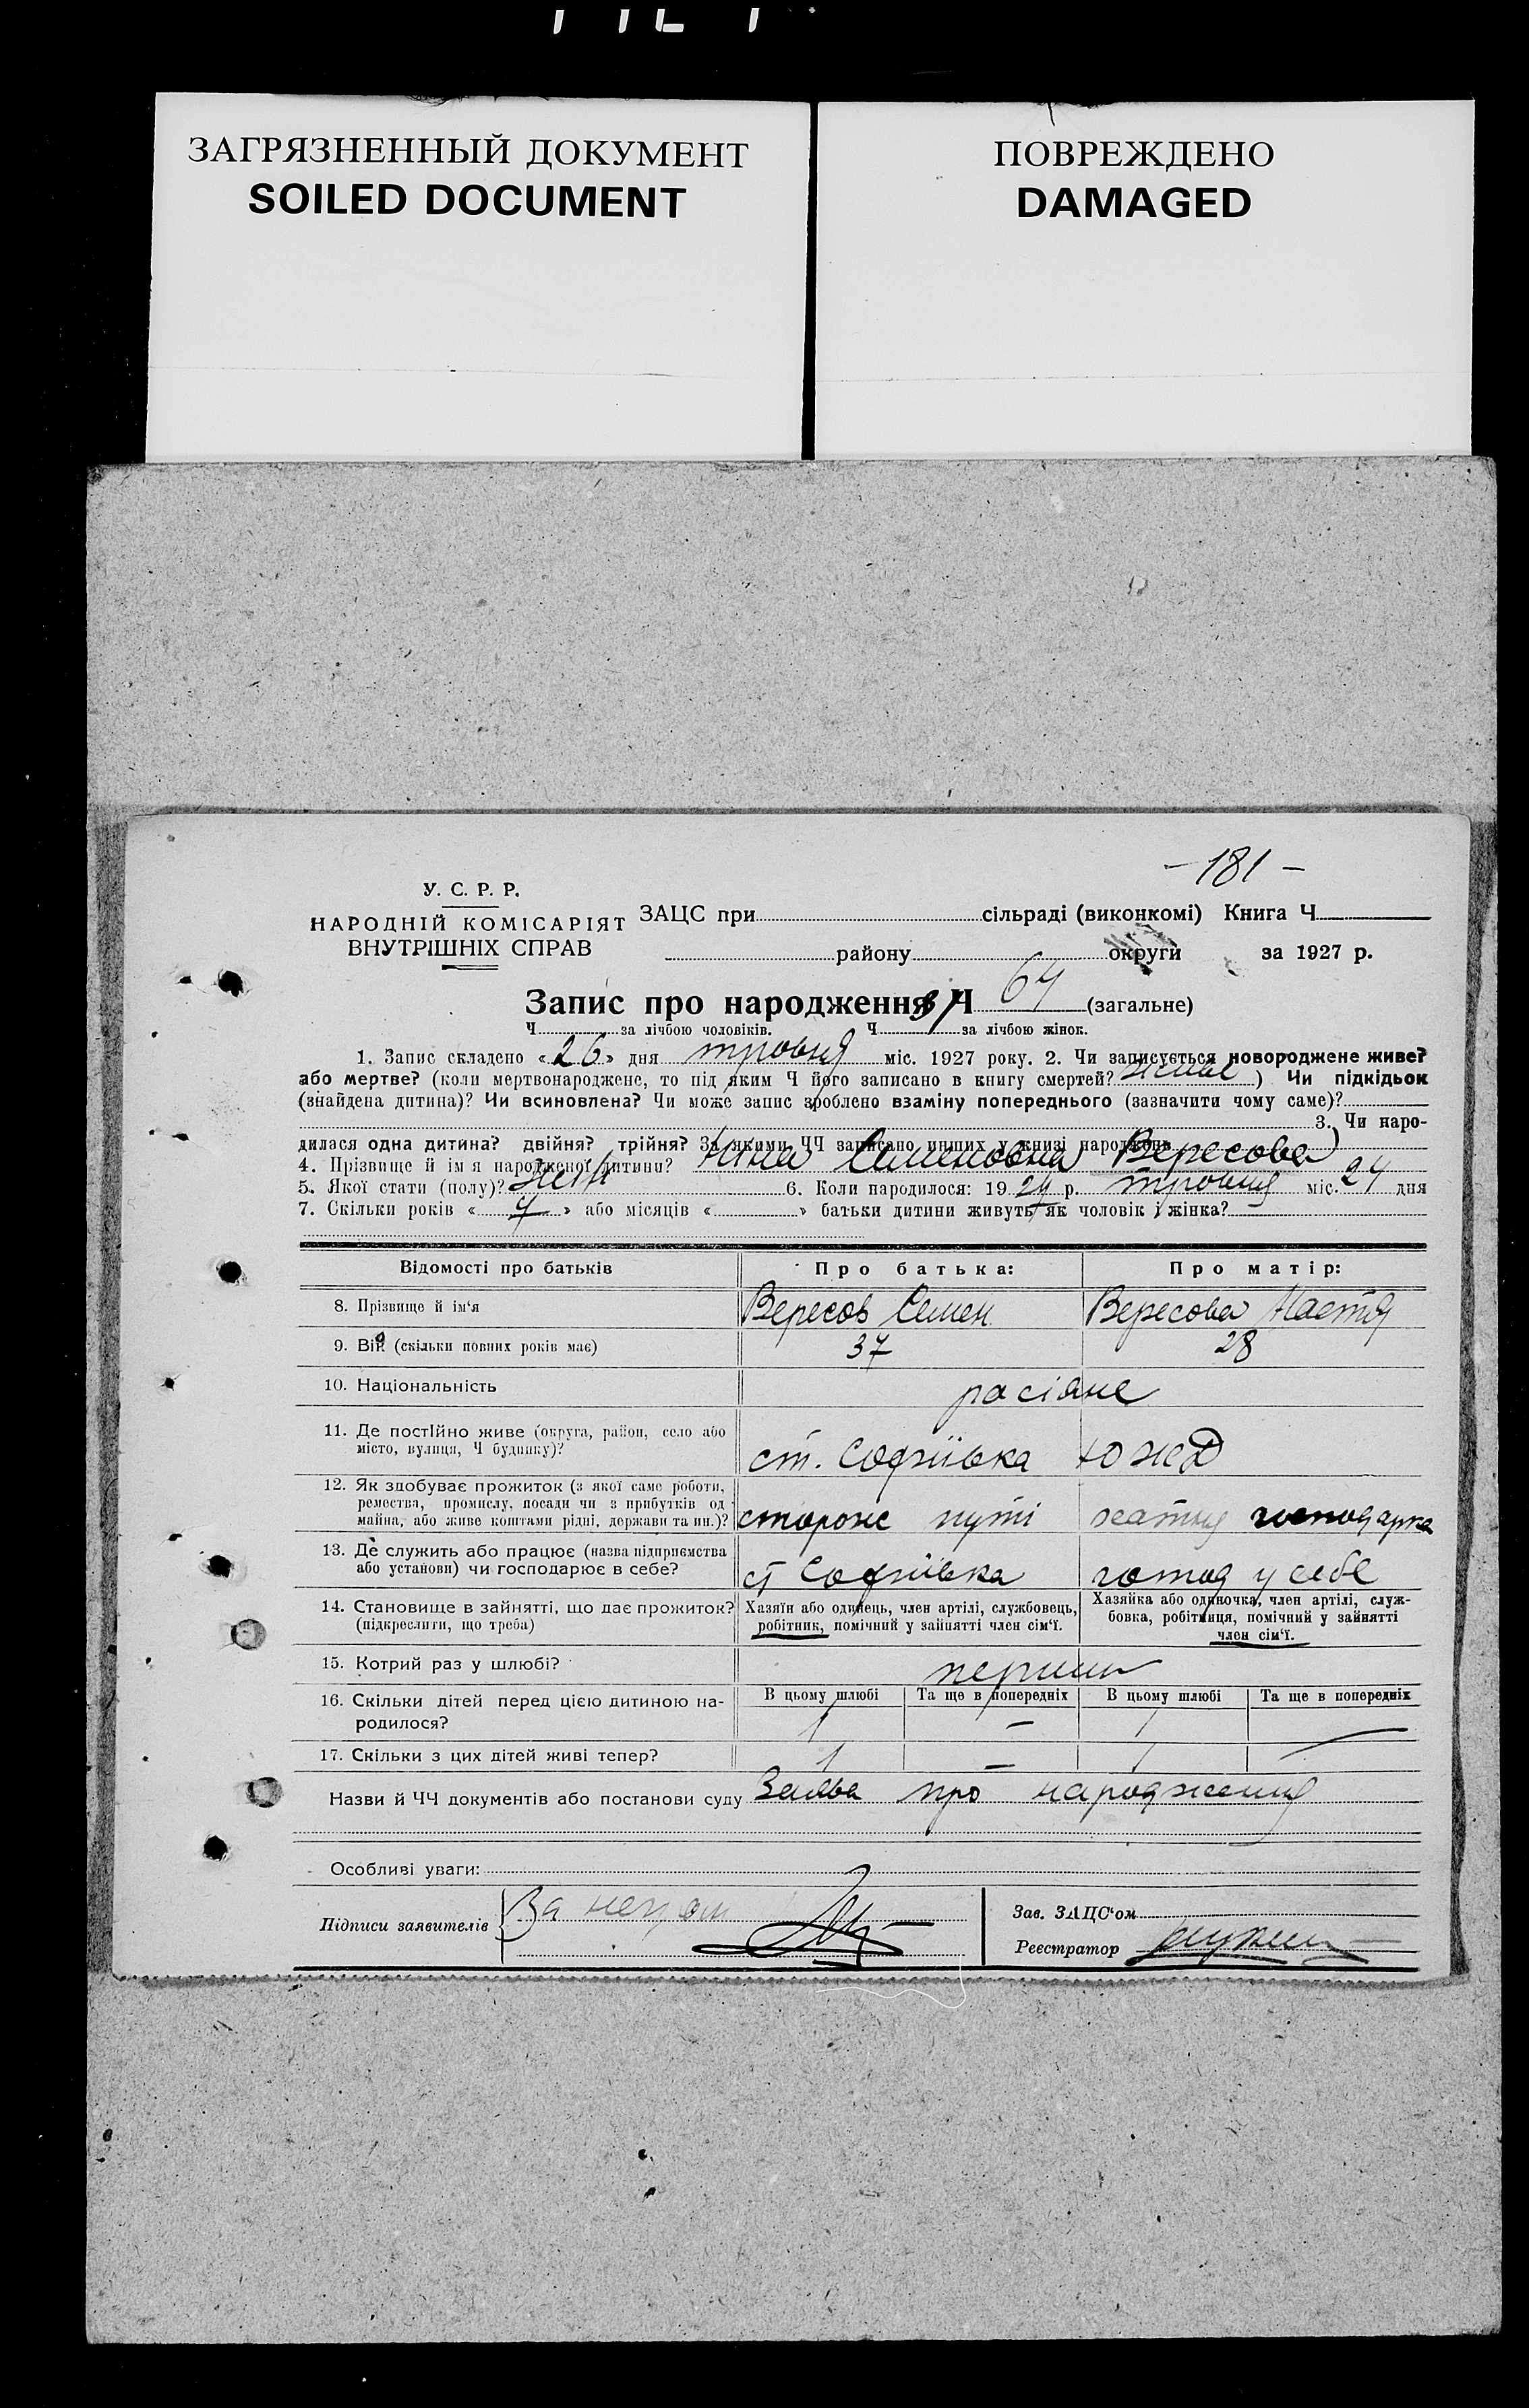 ЗАГРЯЗНЕННЫЙ ДОКУМЕНТ
SOILED DOCUMENT
ПОВРЕЖДЕНО
DAMAGED
- 181 -
У. С. Р. Р.
НАРОДНІЙ КОМІСАРІЯТ
ВНУТРІШНІХ СПРАВ
ЗАЦС при сільраді (виконкомі) Книга Ч
району округи за 1927 р.
Запис про народження Ч 64 (загальне)
Ч за лічбою чоловіків. Ч за лічбою жінок.
1. Запис складено «26» дня травня міс. 1927 року. 2. Чи записується новороджене живе?
або мертве? (коли мертвонароджене, то під яким Ч його записано в книгу смертей? живе) Чи підкідьок
(знайдена дитина)? Чи всиновлена? Чи може запис зроблено взаміну попереднього (зазначити чому саме)?
3. Чи наро-
дилася одна дитина? двійня? трійня? За якими ЧЧ записано инших у книзі народжень
4. Прізвище й ім я народженої дитини? Ніна Семеновна Вересова
5. Якої стати (полу)? жін 6. Коли народилося: 19 27 р. травня міс. 24 дня
7. Скільки років « » або місяців « » батьки дитини живуть як чоловік і жінка?
Відомості про батьків Про батька: Про матір:
8. Прізвище й ім'я Вересов Семен Вересова Настя
9. Вік (скільки повних років має) 37 28
10. Національність расіяне
11. Де постІйно живе (округа, район, село або
місто, вулиця, Ч будинку)? ст. Софиівка Южд
12. Як здобуває прожиток (з якої саме роботи,
ремества, промислу, посади чи з прибутків од
майна, або живе коштами рідні, держави та ин.)? сторож путі хатня господарка
13. Де служить або працює (назва підприємства
або установи) чи господарює в себе? ст Софиівка у себе
14. Становище в зайнятті, що дає прожиток?
(підкреслити, що треба)
Хазяїн або одинець, член артілі, службовець,
робітник, помічний у зайнятті член сім'ї.
Хазяйка або одиночка, член артілі, служ-
бовка, робітниця, помічний у зайнятті
член сім'ї.
15. Котрий раз у шлюбі? перший
16. Скільки дітей перед цією дитиною на-
родилося?
В цьому шлюбі Та ще в попередніх В цьому шлюбі Та ще в попередніх
1 — 1 —
17. Скільки з цих дітей живі тепер? 1 — 1 —
Назви й ЧЧ документів або постанови суду Заява про народження
Особливі уваги:
Підписи заявителів За
Зав. ЗАЦС'ом
Реєстратор